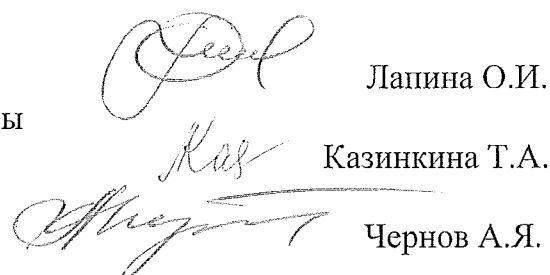 Лапина О.И.
ы
Каз Казинкина Т.А.
Чернов А.Я.